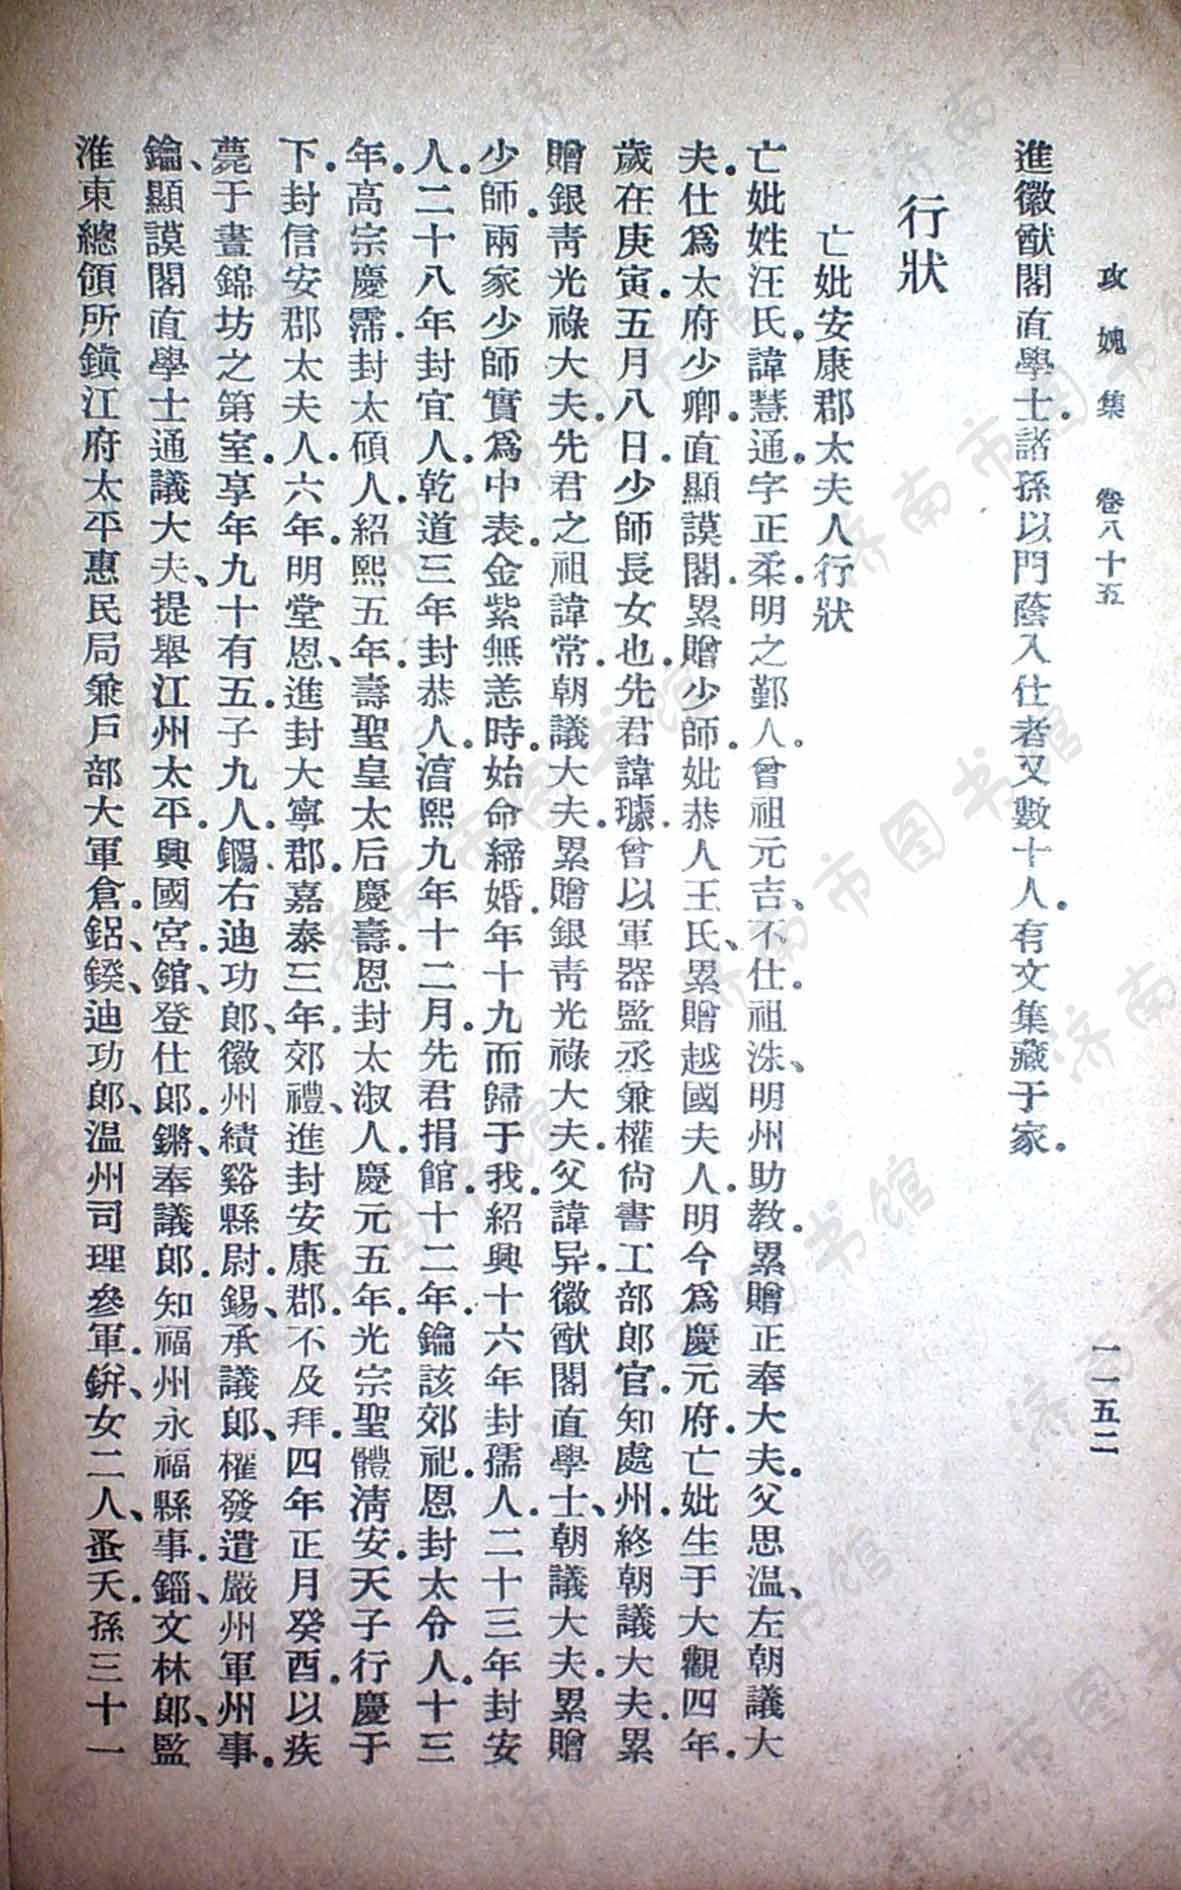 攻媿集 卷八十五 一一五二
進徽猷閣直學士。諸孫以門蔭入仕者又數十人。有文集藏于家。
行狀
亡妣安康郡太夫人行狀
亡妣姓汪氏。諱慧通。字正柔。明之鄞人。曾祖元吉、不仕。祖洙、明州助教。累贈正奉大夫。父思溫、左朝議大
夫。仕爲太府少卿。直顯謨閣。累贈少師。妣恭人王氏、累贈越國夫人。明今爲慶元府。亡妣生于大觀四年。
歲在庚寅。五月八日。少師長女也。先君諱璩。曾以軍器監丞兼權尙書工部郎官。知處州。終朝議大夫。累
贈銀靑光祿大夫。先君之祖諱常。朝議大夫。累贈銀靑光祿大夫。父諱异。徽猷閣直學士、朝議大夫。累贈
少師。兩家少師實爲中表。金紫無恙時。始命締婚。年十九而歸于我。紹興十六年封孺人。二十三年封安
人。二十八年封宜人。乾道三年封恭人。淳熙九年十二月。先君捐館。十二年。鑰該郊祀。恩封太令人。十三
年。高宗慶霈。封太碩人。紹熙五年。壽聖皇太后慶壽。恩封太淑人。慶元五年。光宗聖體淸安。天子行慶于
下。封信安郡太夫人。六年。明堂恩、進封大寧郡。嘉泰三年。郊禮、進封安康郡。不及拜。四年正月癸酉。以疾
薨于晝錦坊之第室。享年九十有五。子九人。鐊右迪功郎、徽州績谿縣尉。錫、承議郎、權發遣嚴州軍州事。
鑰、顯謨閣直學士通議大夫、提舉江州太平興國宮。錧、登仕郎。鏘、奉議郎。知福州永福縣事。錙、文林郎、監
淮東總領所鎭江府太平惠民局兼戶部大軍倉。鋁、鍨、迪功郎、溫州司理參軍。鉼、女二人、蚤夭。孫三十一
济南市图书馆